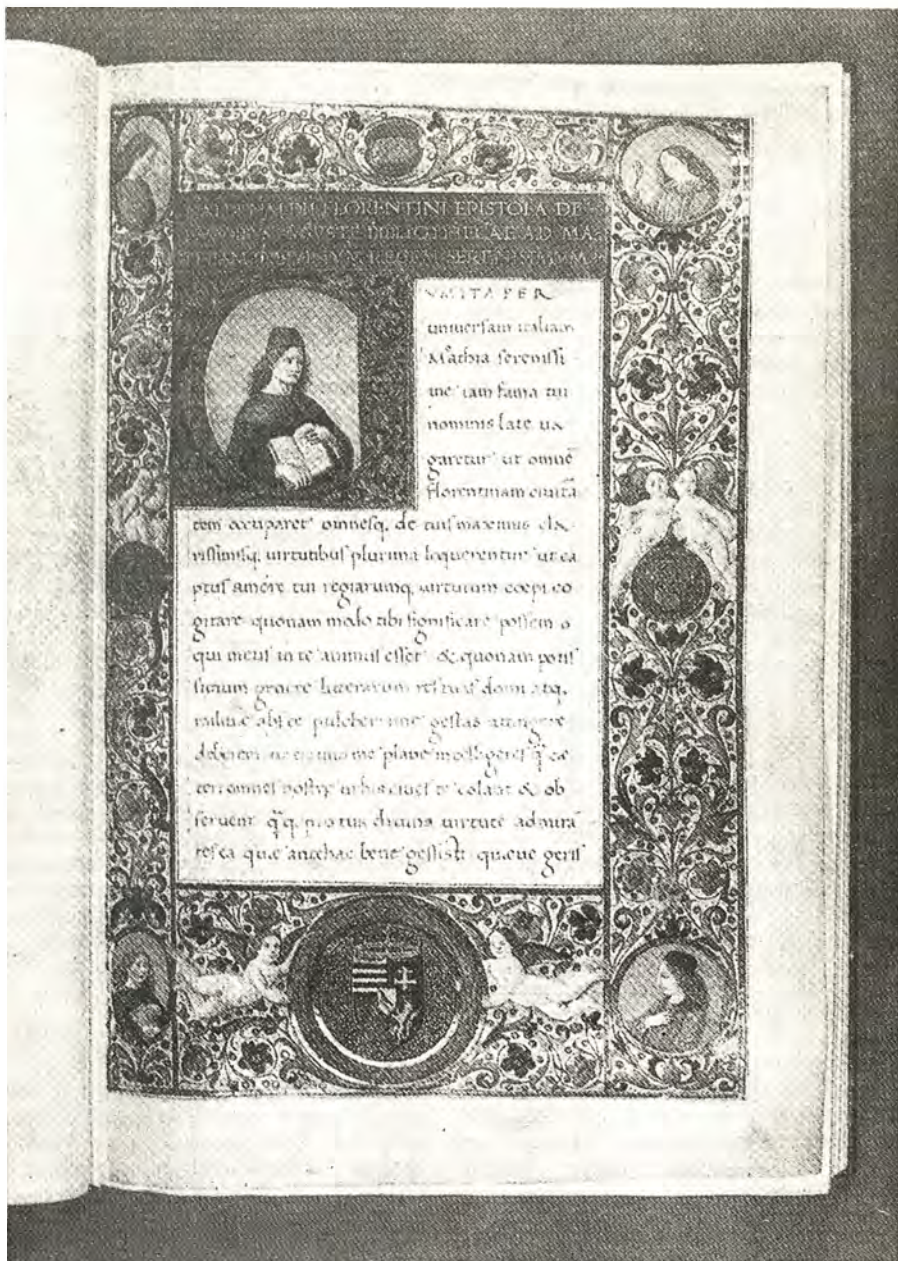 NALDI NALDII FLORENTINI EPISTOLA DE
AVGVSTE BIBLIOTHECAE AD MA
SERENISSIMVM
VM ITA PER
uniuersam italiam
Mathia sereniſſi
me iam fama tui
nominis late ua
garetur ut omnē
florentinam ciuita
tem occuparet omneſq. de tuis maximis cla
riſſimiſq. uirtutibuſ plurima loquerentur ut ca
ptuſ amore tui regiarumq. uirtutum coepi co
gitare quonam modo tibi significare poſſem o
qui meuſ in te animuſ eſſet & quonam potiſ
ſimum genere litterarum reſ tuaſ domi atq.
militiæ abſ te pulcherrime geſtas attingere
deberem ut ex uno me plane intelligereſ q̄ ce
teri omneſ noſtre urbiſ ciueſ te colant & ob
ſeruent tua diuina uirtute admirā
teſ ea quæ antehac bene geſſiſti quæue geriſ